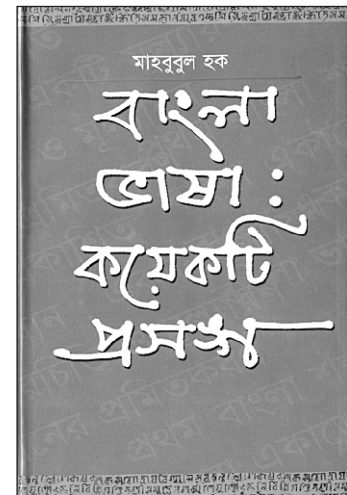 মাহবুবুল হক
বাংলা
ভাষা :
কয়েকটি
প্রসঙ্গ